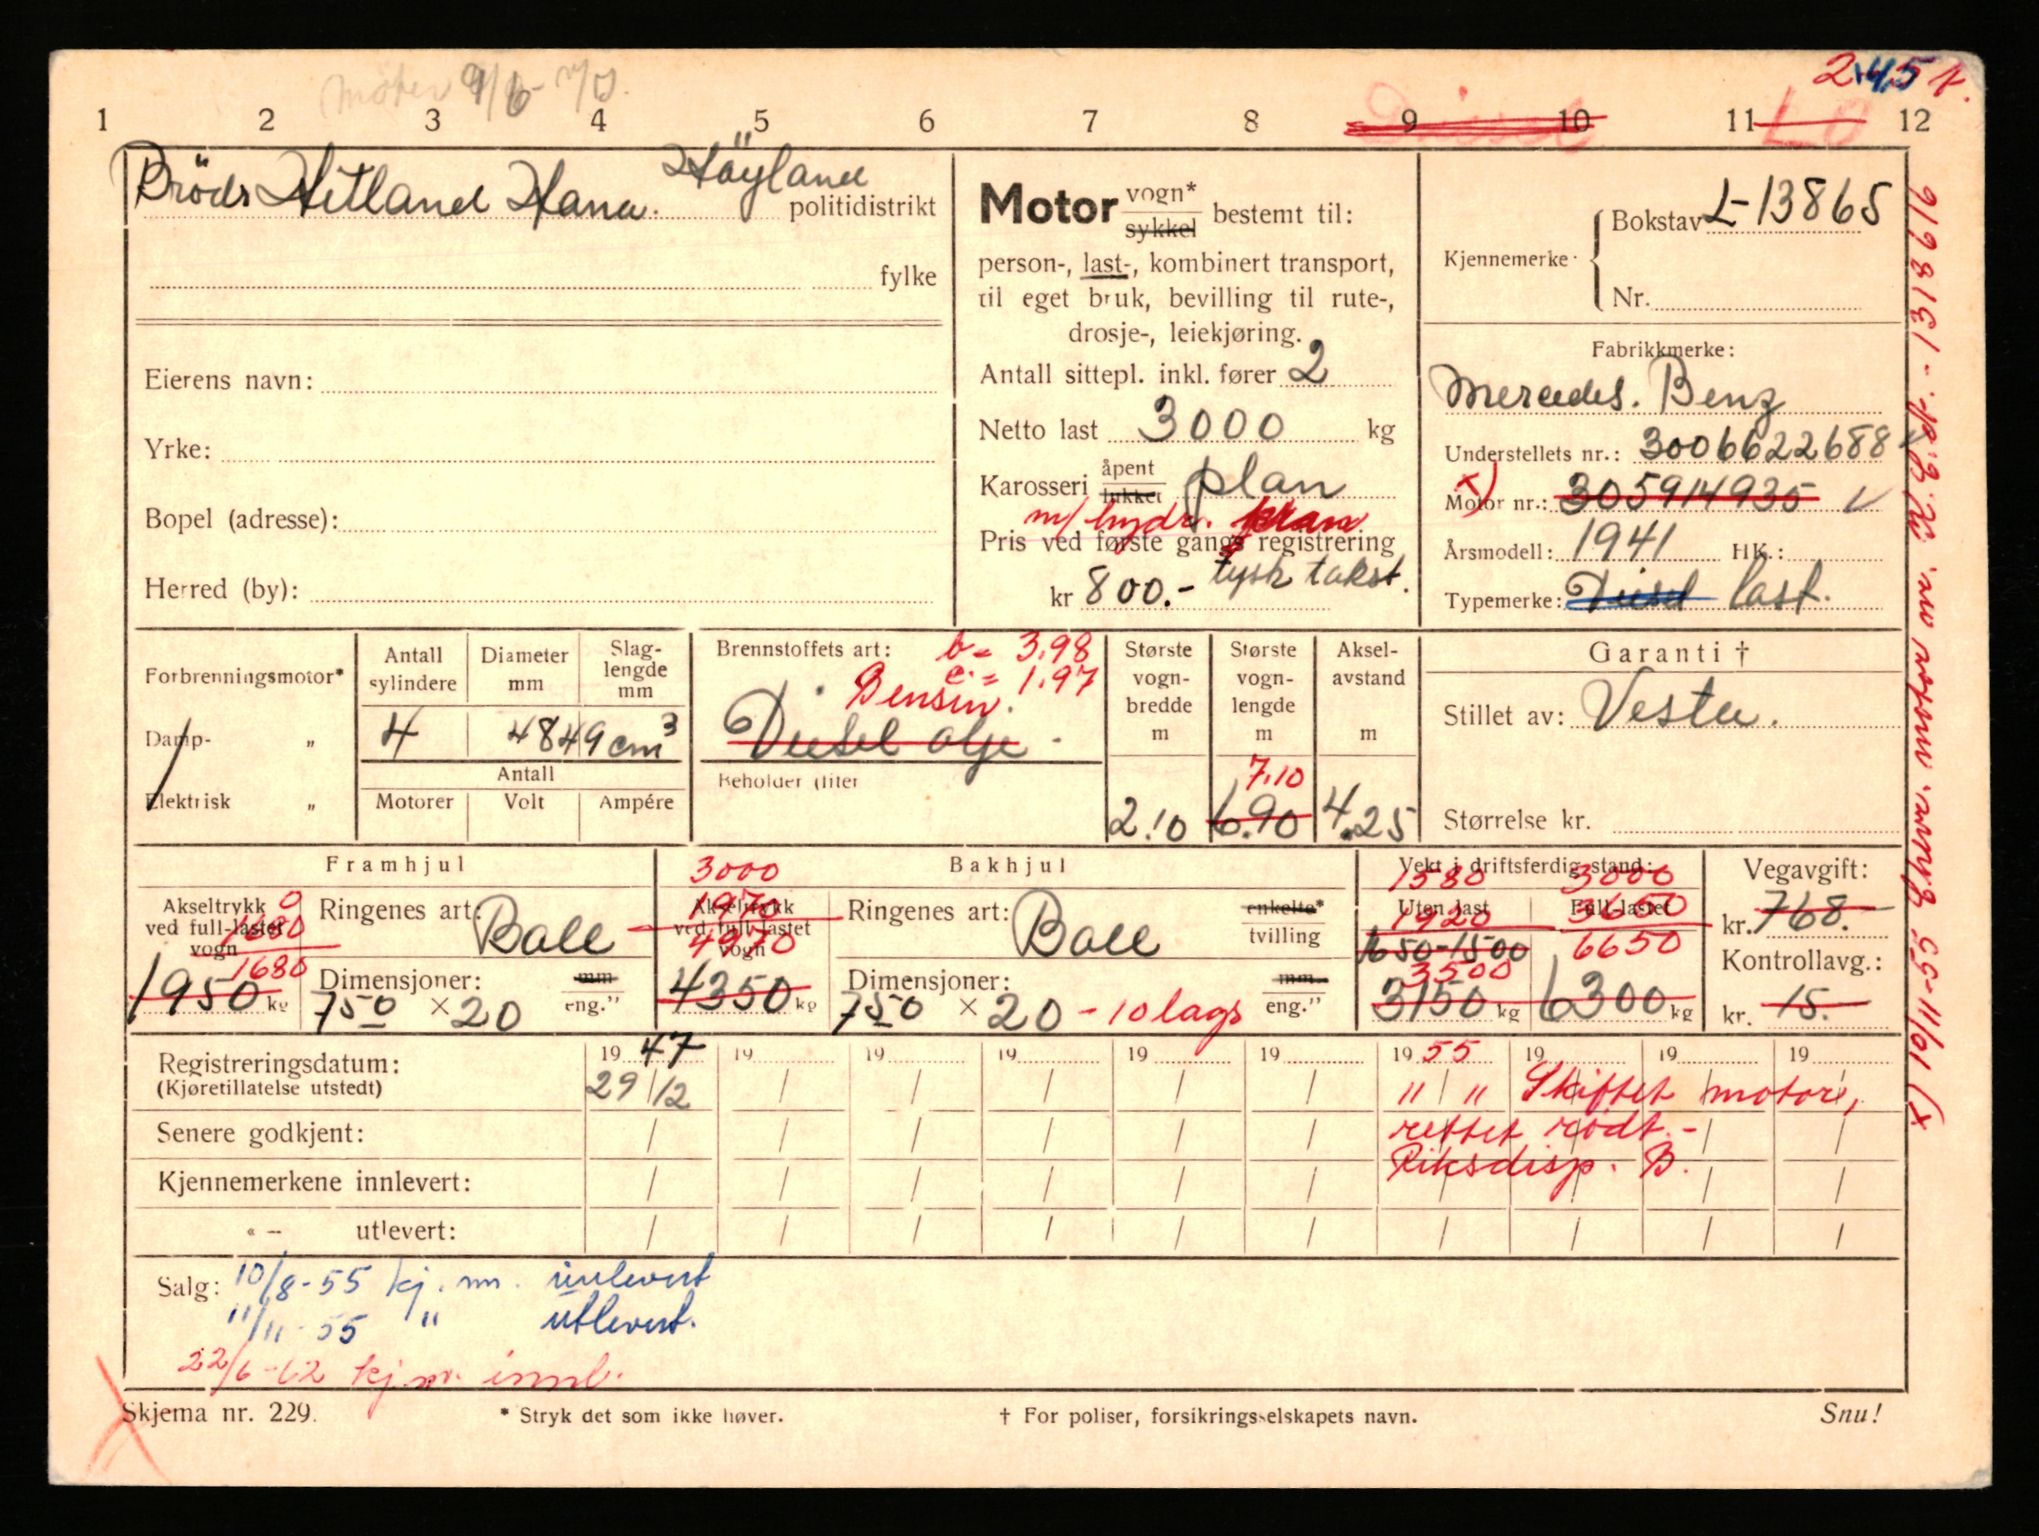 2,45 t.
1 2 3 4 5 6 7 8 9 10 11 12
Bröds Hetland Hana. Höyland politidistrikt
fylke
Eierens navn:
Yrke:
Bopel (adresse):
Herred (by):
Motor vogn* sykkel bestemt til:
person-, last-, kombinert transport,
til eget bruk, bevilling til rute-,
drosje-, leiekjøring.
Antall sittepl. inkl. fører 2
Netto last 3000 kg
Karosseri åpent lukket plan
m/ hydr. kran
Pris ved første gangs registrering
kr 800.- tysk takst.
Kjennemerke
Bokstav L-13865
Nr.
Fabrikkmerke:
Mercedes. Benz
Understellets nr.: 3006622688
x) Motor nr.: 305914935
Årsmodell: 1941 HK.:
Typemerke: Diesel last.
Forbrenningsmotor*
Damp- „
Elektrisk „
Antall sylindere
Diameter mm
Slag-
lengde
mm
4 4849 cm³
Antall
Motorer Volt Ampére
Brennstoffets art: b = 3.98
e. = 1.97
Bensin.
Diesel olje -
Beholder liter
Største
vogn-
bredde
m
2.10
Største
vogn-
lengde
m
7.10
6.90
Aksel-
avstand
m
4.25
Garanti †
Stillet av: Vesta.
Størrelse kr.
Framhjul
Akseltrykk
ved full-lastet
vogn
1680
1680
1950 kg
Ringenes art: Ball
Dimensjoner: mm
750 × 20 eng."
Bakhjul
3000
1970
Akseltrykk
ved full-lastet
vogn
4970
4350 kg
Ringenes art: Ball enkelte* tvilling
Dimensjoner: mm
750 × 20 - 10 lags eng."
Vekt i driftsferdig stand:
1580 3000
Uten last Full-lastet
1920 3650
1650-1500 6650
3500
3150 kg 6300 kg
Vegavgift:
kr. 768.
Kontrollavg.:
kr. 15.
Registreringsdatum: 19 47 19 19 19 19 19 19 55 19 19 19
(Kjøretillatelse utstedt) 29/12 " / " Skiftet motor,
Senere godkjent: rettet rödt. -
Kjennemerkene innlevert: Riksdisp. B.
« – utlevert:
Salg: 10/8-55 kj. nr. innlevert
11/11-55 " utlevert.
22/6-62 kj.nr. innl.
Skjema nr. 229. * Stryk det som ikke høver. † For poliser, forsikringsselskapets navn. Snu!